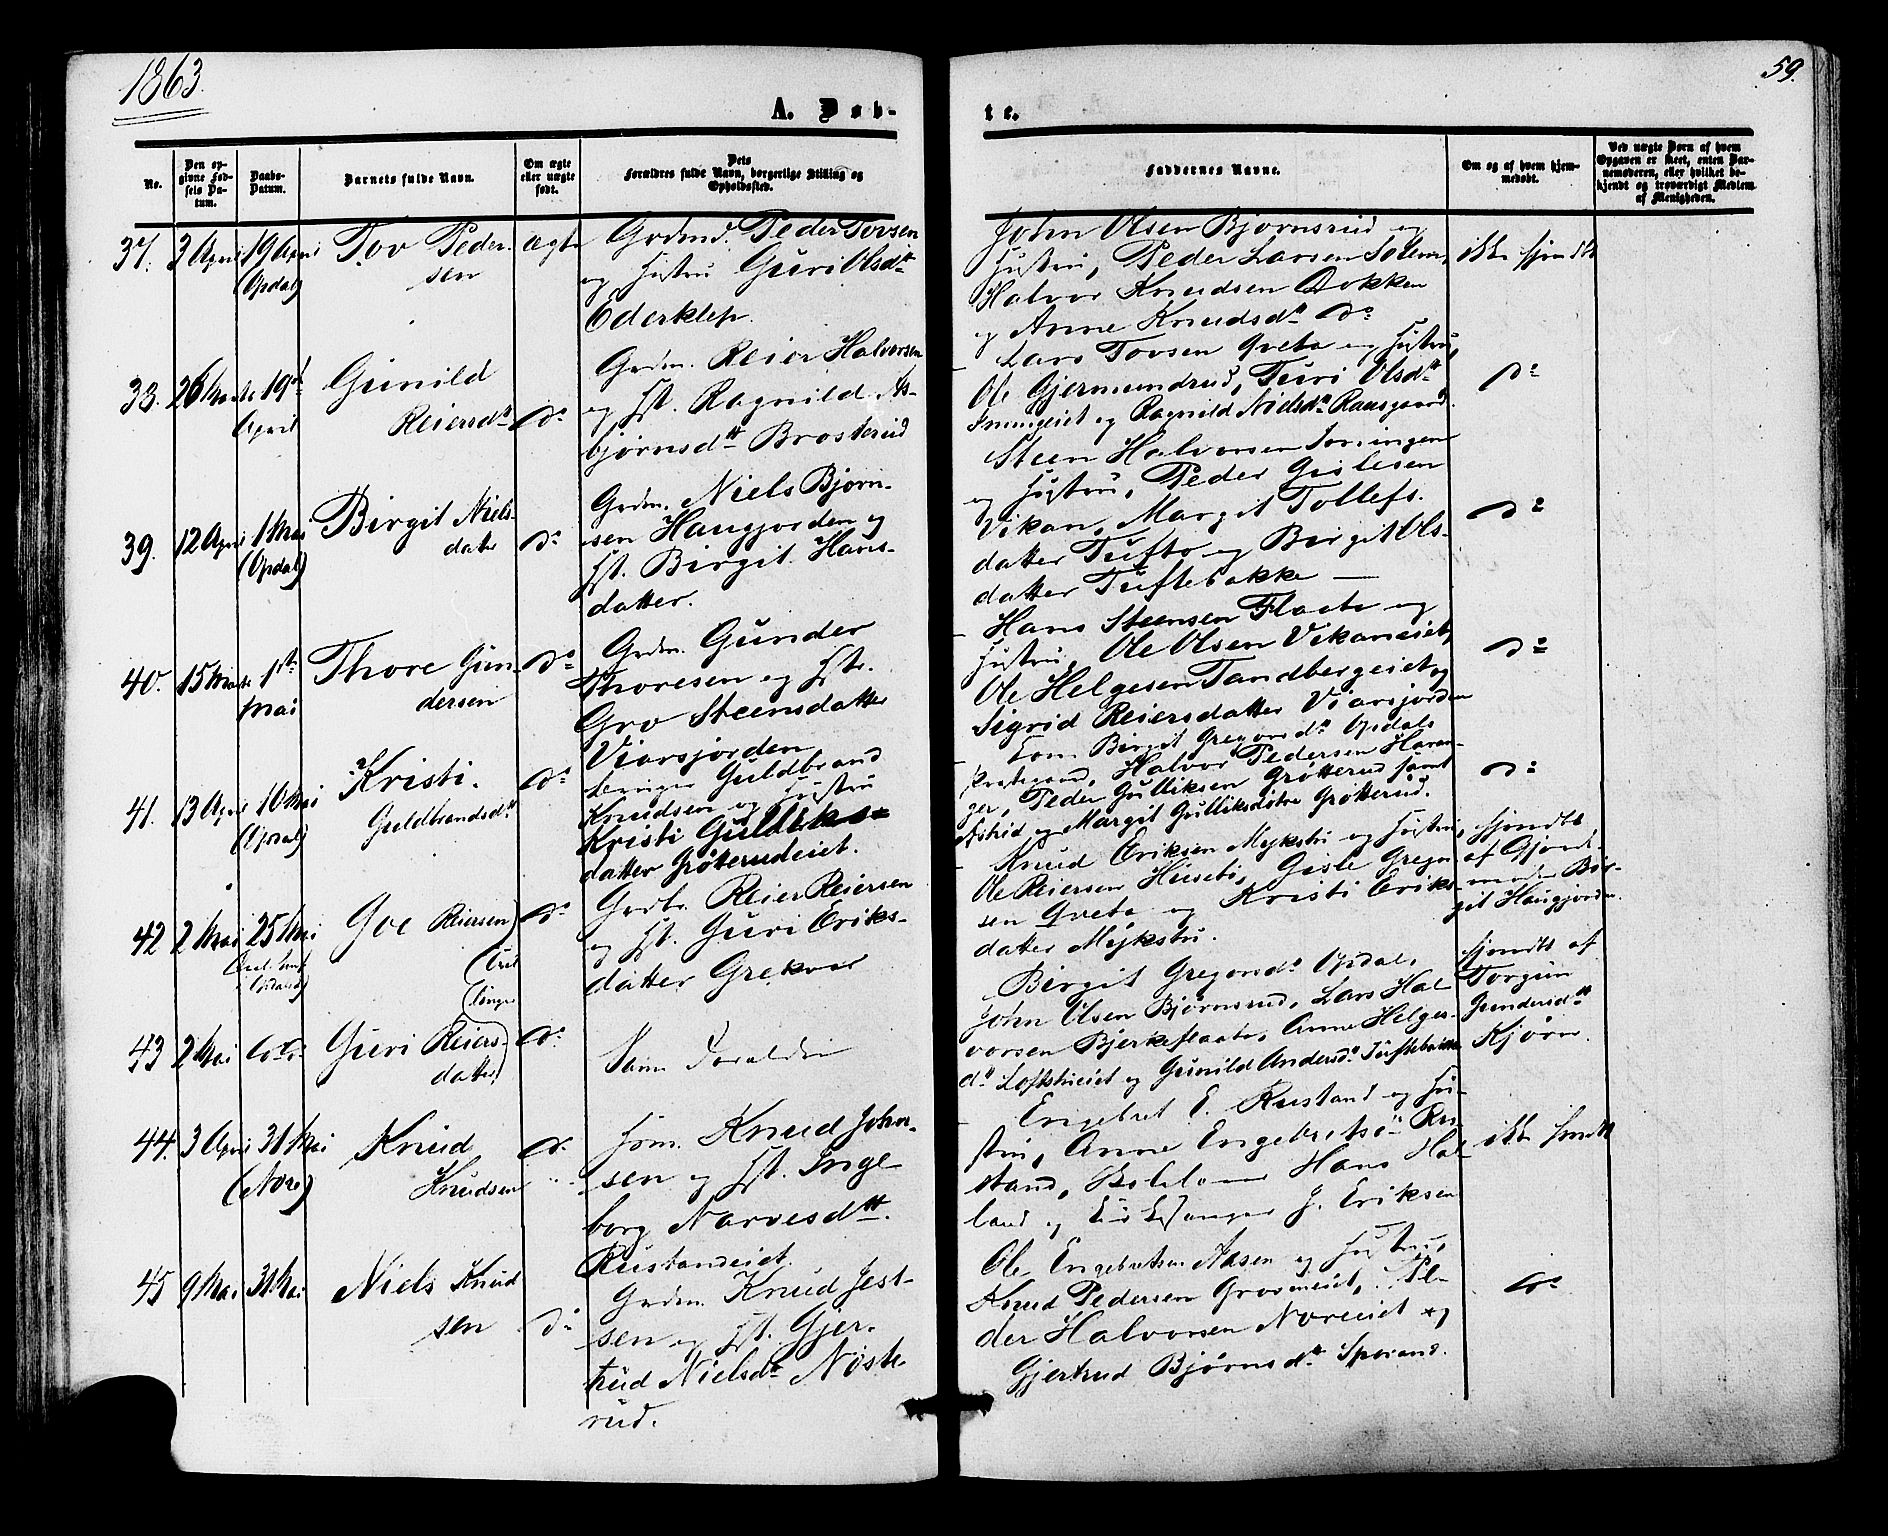 1863.
59.
A. Døb-
te.
No.
Den op-
givne Fød-
sels Da-
tum.
Daabs-
Datum.
Barnets fulde Navn.
Om ægte
eller uægte
født.
Dets
Forældres fulde Navn, borgerlige Stilling og
Opholdssted.
Faddernes Navne.
Om og af hvem hjem-
medøbt.
Ved uægte Børn af hvem
Opgaven er skeet, enten Bar-
nemoderen, eller hvilket be-
kjendt og troværdigt Medlem
af Menigheden.
37.
3 April
19 April
(Opdal)
Tov Peder-
sen
ægte
Grdmd. Peder Tovsen
og Hustru Guri Olsdtr
Ederklep.
John Olsen Bjørnsrud og
Hustru, Peder Larsen Solem,
Halvor Knudsen Dokken
og Anne Knudsdtr do
ikke hjemdbt
38.
26 Marts
19de
April
Gunild
Reiersdtr
do
Grdm. Reier Halvorsen
og Hst. Ragnild As-
bjørnsdtr Brosterud
Lars Tovsen Qveta og Hustru,
Ole Gjermundrud, Turi Olsdtr
og Ragnild Nielsdtr
do
39.
12 April
1 Mai
(Opdal)
Birgit Niels-
datter
do
Grdm. Niels Bjørn-
sen Haugjorden og
Hst. Birgit Hans-
datter.
Steen Halvorsen
og Hustru, Peder Gislesen
Vikan, Margit Tollefs-
datter Tufto og Birgit Ols-
datter Tuftebakke —
do
40.
15 Marts
1ste
Mai
Thore Gun-
dersen
do
Grdm. Gunder
Thoresen og Hst.
Gro Steensdatter
Viarsjorden
Hans Steensen Flaata og
Hustru, Ole Olsen Vikaneiet,
Ole Helgesen Tandbergeiet og
Sigrid Reiersdatter Viarsjorden
do
41.
13 April
10 Mai
(Opdal)
Kristi
Guldbrandsdtr
do
Guldbrand
Knudsen og Hustru
Kristi Gulliks-
datter Grøterudeiet.
Birgit Gregorsdtr Opdals
Præstegaard, Halvor Pedersen Haran-
ger, Peder Gulliksen Grøtterud samt
Astrid og Margit Gulliksdøtre Grøtterud.
do
42
2 Mai
25 Mai
Goe Reiersen
do
Grdbr. Reier Reiersen
og Hst. Guri Eriks-
datter Grekvar
Knud Eriksen Mykstu og Hustru,
Ole Reiersen Husebø, Gisle Gregor-
sen Qveta og Kristi Eriks-
datter Mykstu.
hjemdbt
af Gjord-
moder Bir-
git Haugjorden.
43
2 Mai
do do
Guri Reiers-
datter
do
Samme Forældre
Birgit Gregorsdtr Opdal,
John Olsen Bjørnsrud, Lars Hal-
vorsen Bjerkeflaata, Anne Helges-
dtr Loftstueiet og Gunild Andersdtr Tuftebakke
hjemdbt af
Torgun
Gundersdtr
Kjørn.
44.
3 April
31 Mai
(Nore)
Knud
Knudsen
do
Hsm. Knud John-
sen og Hst. Inge-
borg Narvesdtr.
Rustandeiet.
Engebret E. Rustand og Hu-
stru, Anne Engebretsd. Ru-
stand, Hans Hal-
land og Kirkesanger J. Eriksen
ikke hjemdbt
45
9 Mai
31 Mai
Niels Knud
sen
do
Grdm. Knud Jest-
sen og Hst. Gjer-
trud Nielsdtr Nøste-
rud.
Ole Engebretsen Aasen og Hustru,
Knud Pedersen Grosmeiet, Pe-
der Halvorsen Noreeiet og
Gjertrud Bjørnsdtr
do